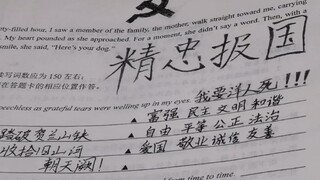 etty-filled hoof, I saw a member of the family, the mother, walk straight toward me, carrying
My heart pounded as she approached. For a moment, she didn't say a word. Then, with a
smile, she said, "Here's your dog."
精忠报国
写词数应为 150 左右;
在答题卡的相应位置作答。
speechless as grateful tears were welling up in my eyes.
我要洋人死!!!
富强 民主 文明 和谐
踏破贺兰山缺
自由 平等 公正 法治
收拾旧山河
爱国 敬业 诚信 友善
朝天阙!!
from time to time.